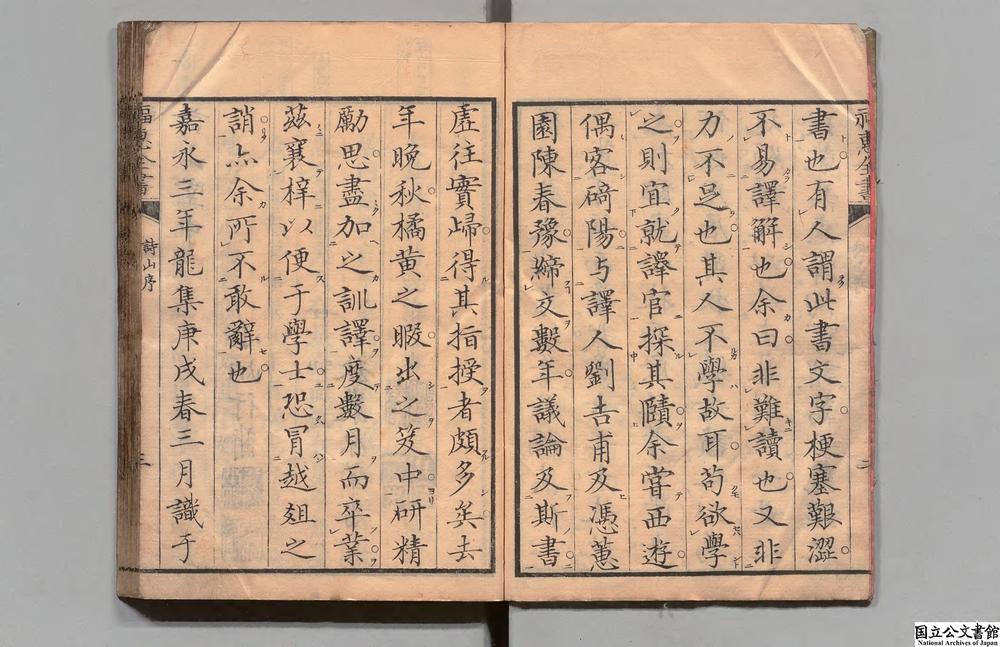 書也有人謂此書文字梗塞艱澀
不易譯解也余曰非難讀也又非
力不足也其人不學故耳苟欲學
之則宜就譯官探其賾余嘗西遊
偶客碕陽与譯人劉吉甫及馮蕙
園陳春豫締交數年議論及斯書
虛往實歸得其指授者頗多矣去
年晚秋橘黃之暇出之笈中研精
勵思盡加之訓譯度數月而卒業
茲襄梓以便于學士恐冒越俎之
誚亦余所不敢辭也
嘉永三年龍集庚戌春三月識于
福惠全書
詩山序
三
国立公文書館
National Archives of Japan